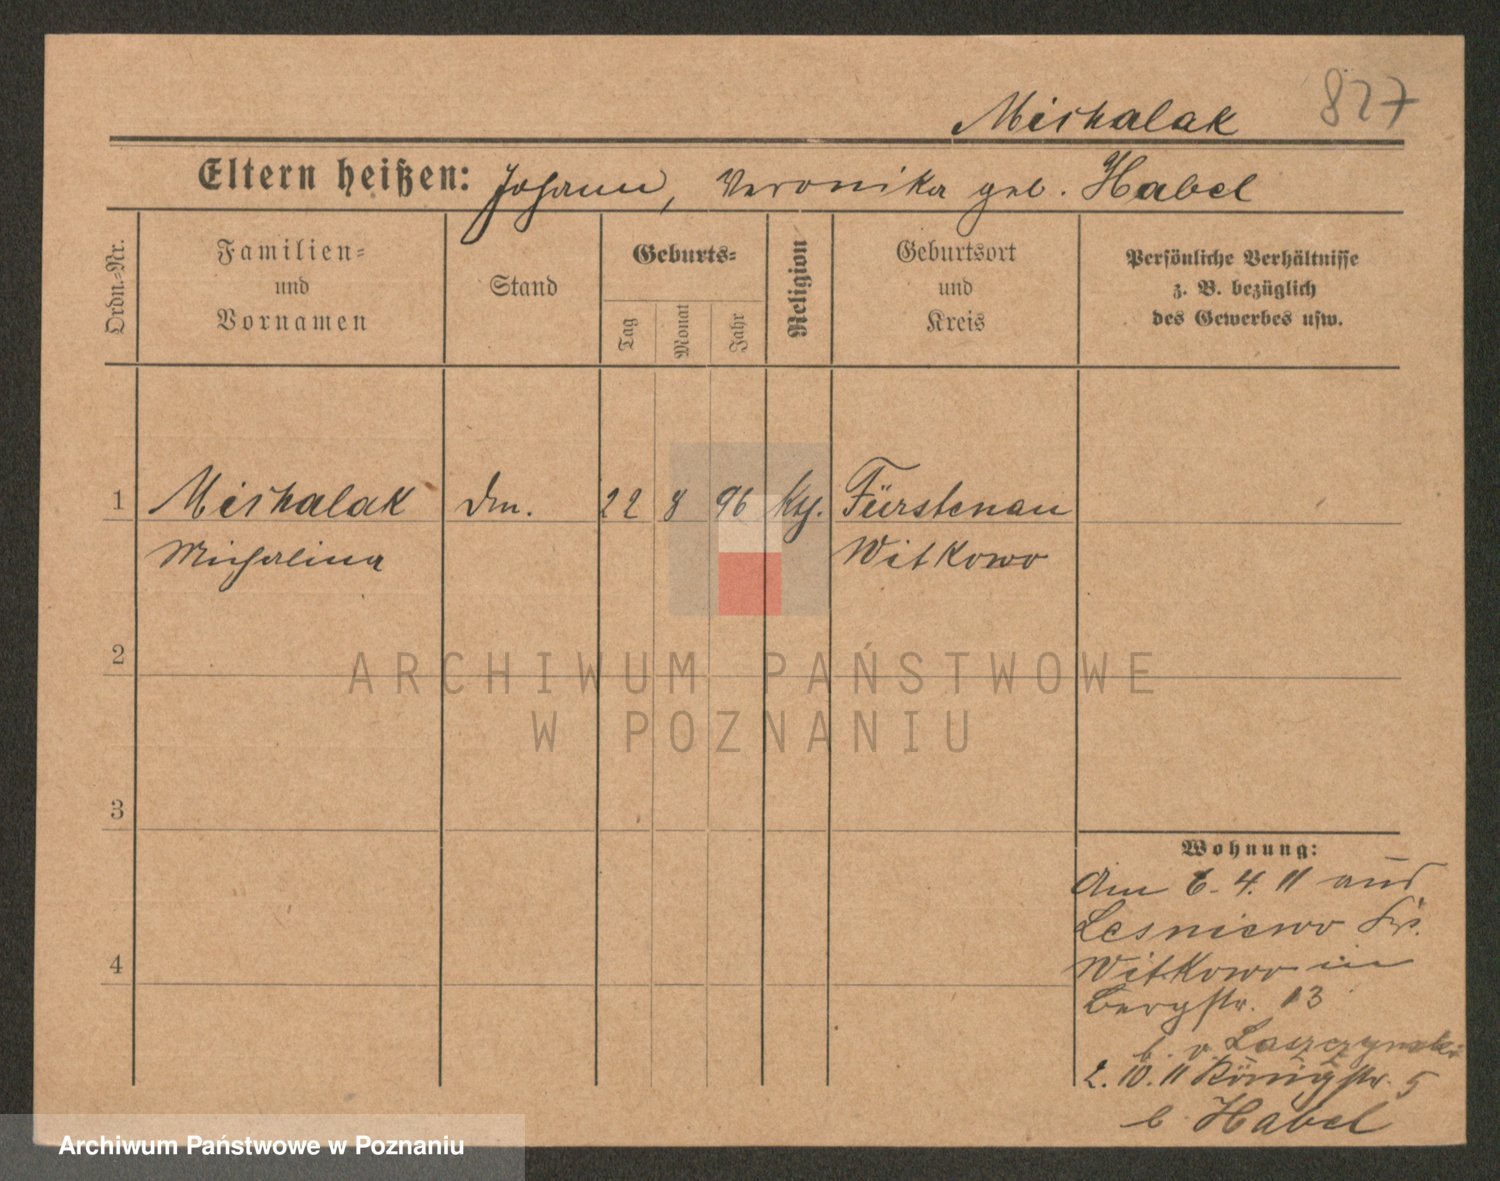 Michalak 827
Eltern heißen: Johann, Veronika geb. Habel
Ordn.-Nr.
Familien-
und
Vornamen
Stand
Geburts-
Tag
Monat
Jahr
Religion
Geburtsort
und
Kreis
Persönliche Verhältnisse
z. B. bezüglich
des Gewerbes usw.
1 Michalak Dm. 22 8 96 kth. Fürstenau
Michalina Witkowo
2
ARCHIWUM PAŃSTWOWE
W POZNANIU
3
Wohnung:
Am 6. 4. 11 aus
Lesniewo Krs.
4
Witkowo in
Bergstr. 13
b. v. Laszczynski
2. 10. 11 Königstr. 5
b. Habel
Archiwum Państwowe w Poznaniu